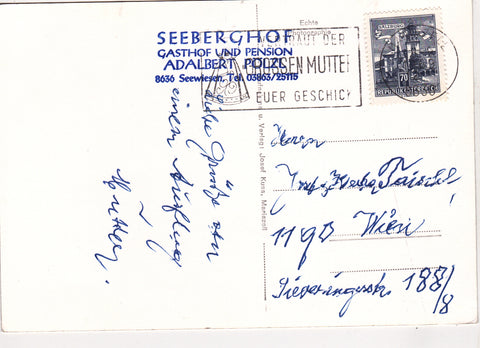 SEEBERGHOF
GASTHOF UND PENSION
ADALBERT POLZL
8636 Seewiesen, Tel. 03863/25115
Echte
Photographie
VERTRAUT DER
MUTTE
EUER GESCHICK
SALZBURG
70
REPUBLIK
u. Verlag Josef Kuss, Mariazell
Liebe Grüße von
einem Ausflug
Mutter.
Herrn
1190 Wien
Sieveringerstr. 188/8